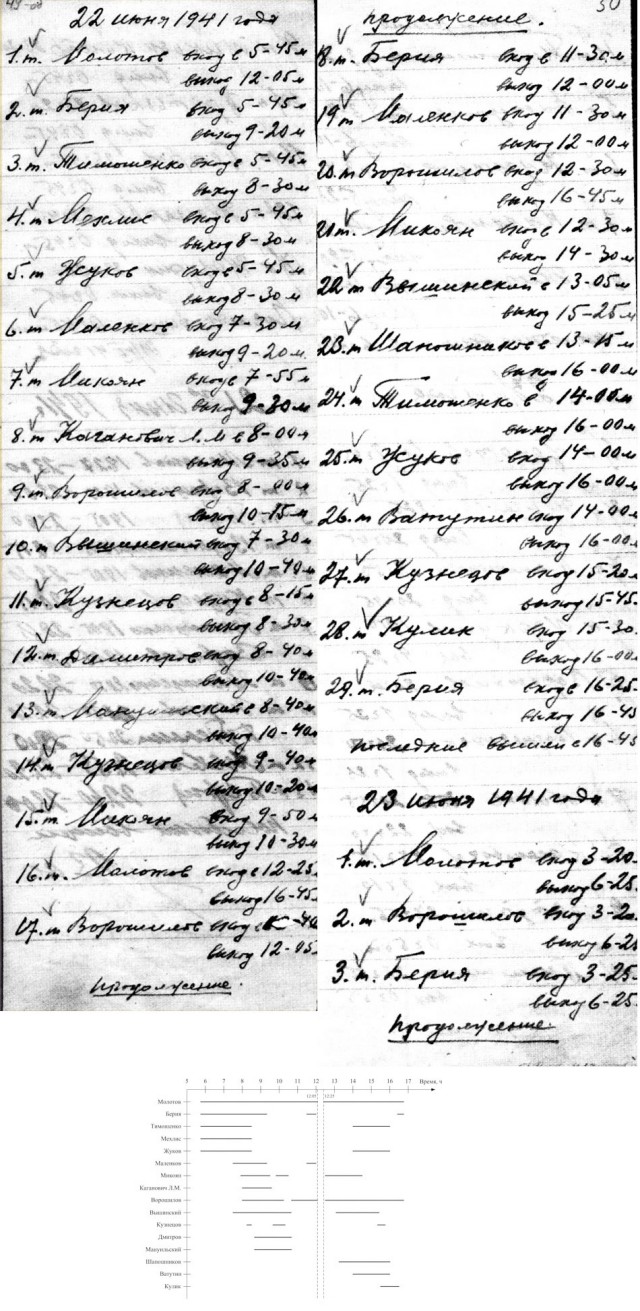 22 июня 1941 года
1. т. Молотов вход в 5-45м
выход 12-05м
2. т. Берия вход 5-45м
выход 9-20м
3. т. Тимошенко вход в 5-45м
выход 8-30м
4. т Мехлис вход в 5-45м
выход 8-30м
5. т Жуков вход в 5-45м
выход 8-30м
6. т Маленков вход 7-30м
выход 9-20м.
7. т. Микоян вход в 7-55м
выход 9-30м
8. т Каганович Л.М в 8-00м
выход 9-35м
9. т. Ворошилов вход 8-00м
выход 10-15м
10. т Вышинский вход 7-30м
выход 10-40м
11. т. Кузнецов вход в 8-15м
выход 8-30м
12. т. Димитров вход 8-40м
выход 10-40м
13. т. Мануильский в 8-40м
выход 10-40м
14. т Кузнецов вход 9-40м
выход 10-20м
15. т. Микоян вход 9-50м
выход 10-30м
16. т. Молотов вход в 12-25
выход 16-45
17. т Ворошилов вход в
выход 12-05
продолжение.
продолжение.
18. т. Берия вход в 11-30м
выход 12-00м
19 т Маленков вход 11-30м
выход 12-00м
20. т Ворошилов вход 12-30м
выход 16-45м
21 т. Микоян вход в 12-30м
выход 14-30м
22 т Вышинский в 13-05м
выход 15-25м
23. т Шапошников в 13-15м
выход 16-00м
24. т Тимошенко в 14-00м
выход 16-00м
25. т Жуков вход 14-00м
выход 16-00м
26. т Ватутин вход 14-00м
выход 16-00
27. т Кузнецов вход 15-20м
выход 15-45
28. т Кулик вход 15-30
выход 16-00
29. т. Берия вход в 16-25
выход 16-45
последние вышли в 16-45
23 июня 1941 года
1. т. Молотов вход 3-20
выход 6-25
2. т Ворошилов вход 3-20
выход 6-25
3. т. Берия вход 3-25
выход 6-25
продолжение
5 6 7 8 9 10 11 12 13 14 15 16 17 Время, ч
12:05 12:25
Молотов
Берия
Тимошенко
Мехлис
Жуков
Маленков
Микоян
Каганович Л.М.
Ворошилов
Вышинский
Кузнецов
Димитров
Мануильский
Шапошников
Ватутин
Кулик